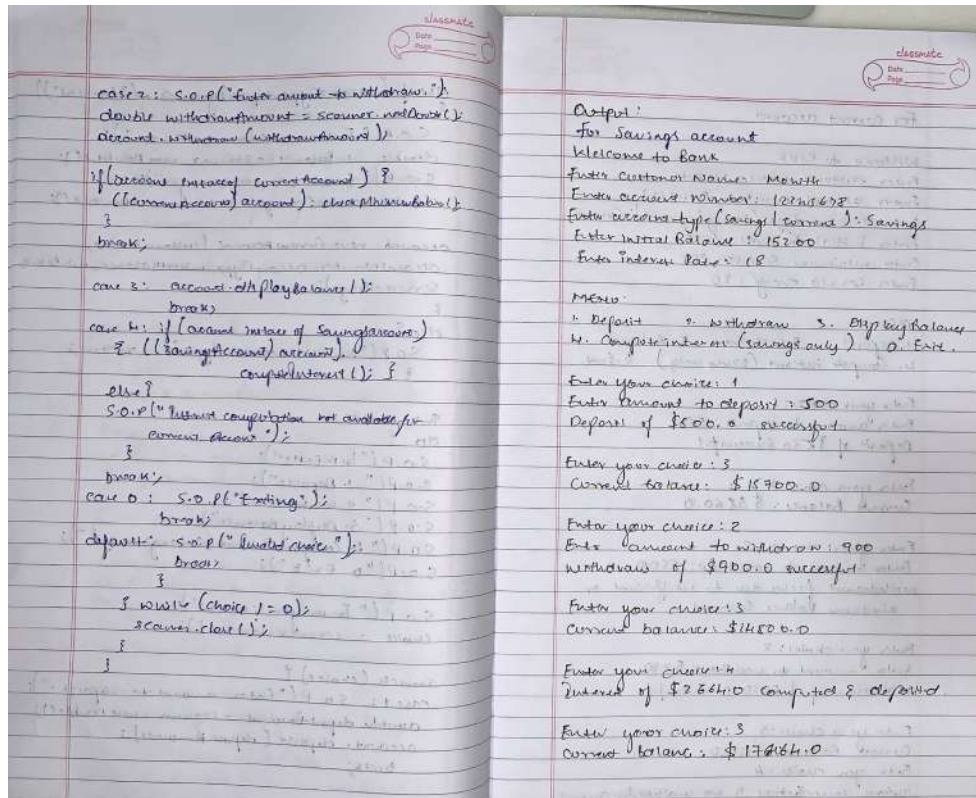 classmate
Date
Page
case 2: S.O.P("Enter amount to withdraw:");
double withdrawAmount = scanner.nextDouble();
account.withdraw(withdrawAmount);
if(account instanceof CurrentAccount) {
((CurrentAccount) account).checkMinimumBalance();
}
break;
case 3: account.displayBalance();
break;
case 4: if (account instace of SavingsAccount)
{ ((SavingsAccount) account).
computeInterest(); }
else {
S.O.P("Interest computation not available for
current account");
}
break;
case 0: S.O.P("Exiting");
break;
default: S.O.P("Invalid choice");
break;
}
} while (choice != 0);
scanner.close();
}
}
classmate
Date
Page
Output:
For Savings account
Welcome to Bank
Enter Customer Name:
Enter account number: 12345678
Enter account type (savings/current): Savings
Enter initial Balance: 15200
Enter interest Rate: 18
MENU:
1. Deposit 2. Withdraw 3. Display Balance
4. Compute interest (savings only) 0. Exit.
Enter your choice: 1
Enter amount to deposit: 500
Deposit of $500.0 successful
Enter your choice: 3
Current balance: $15700.0
Enter your choice: 2
Enter amount to withdraw: 900
Withdrawal of $900.0 successful
Enter your choice: 3
Current balance: $14800.0
Enter your choice: 4
Interest of $2664.0 computed & deposited
Enter your choice: 3
Current balance: $17464.0